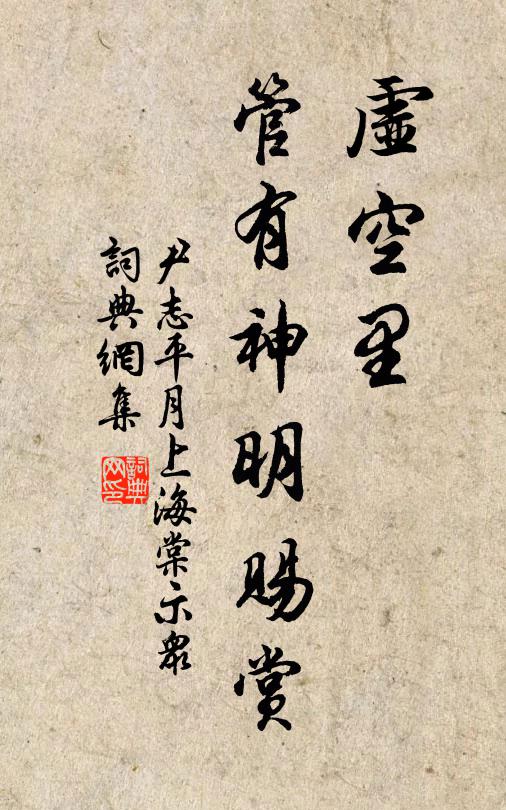 虛空里
管有神明賜賞
尹志平月上海棠示眾
詞典網集
詞典网印